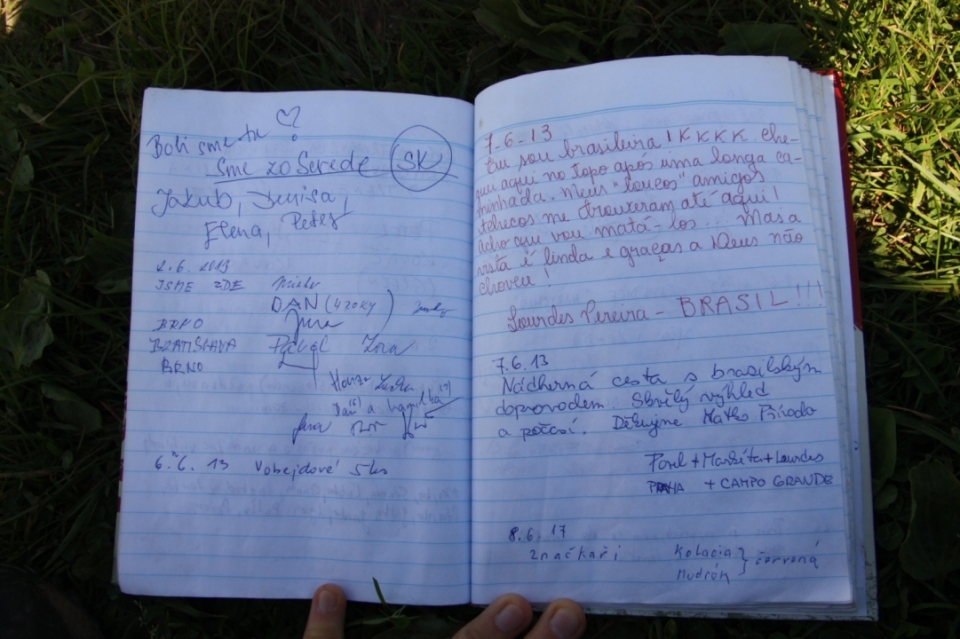 Boli sme tu
Sme zo Serede SK
Jakub, Denisa,
Elena, Peter
2.6. 2013
JSME ZDE
DAN (4 ROKY)
BRNO Jura
BRATISLAVA Zora
BRNO
Hanz Lenka
Dan a
Jana
6.6. 13 Vobejdové 5ks
7-6-13
Eu sou brasileira !KKKK Che-
guei aqui no topo após uma longa ca-
minhada. Meus "loucos" amigos
tchecos me trouxeram até aqui!
Acho que vou matá-los... Mas a
vista é linda e graças a Deus não
choveu!
Lourdes Pereira - BRASIL!!!
7.6.13
Nádherná cesta s brasilským
doprovodem. Skvělý výhled
a počasí. Děkujme Matko Přírodo
Pavel + Markéta + Lourdes
PRAHA + CAMPO GRANDE
8.6.17
Značkaři Kolacia } červená
Mudrák